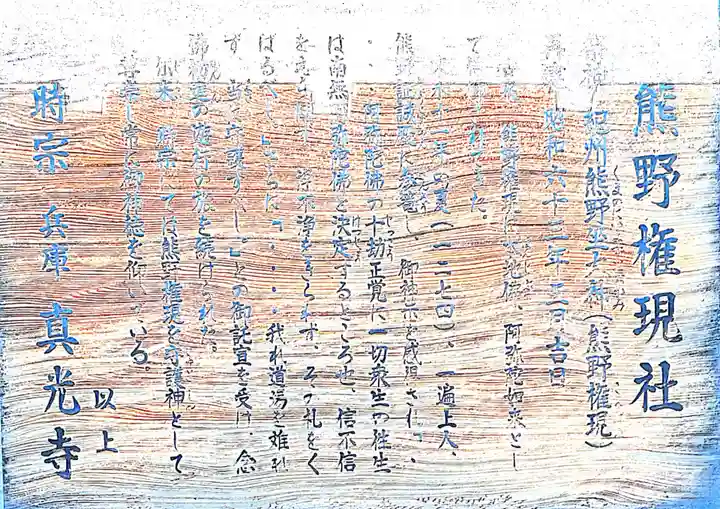 熊野権現社
紀州熊野坐大神(熊野権現)
昭和六十三年三月吉日
熊野権現 本地佛、阿弥陀如来とし
て信仰されてきた。
文永十一年夏(一二七四)、一遍上人、
熊野証誠殿に参籠し、御神示を感得された、
・・・阿弥陀佛の十劫正覚に一切衆生の往生
は南無阿弥陀佛と決定するところ也、信不信
をえらばず、浄不浄をきらわず、その札をく
ばるべし、・・・・我れ道場を難れ
ず、守護すべし」との御託宣を受け、念
佛遊行の旅を続けられた。
尓来、時宗では熊野権現を守護神として
尊崇し常に御神徳を仰いでいる。
以上
時宗 兵庫 真光寺